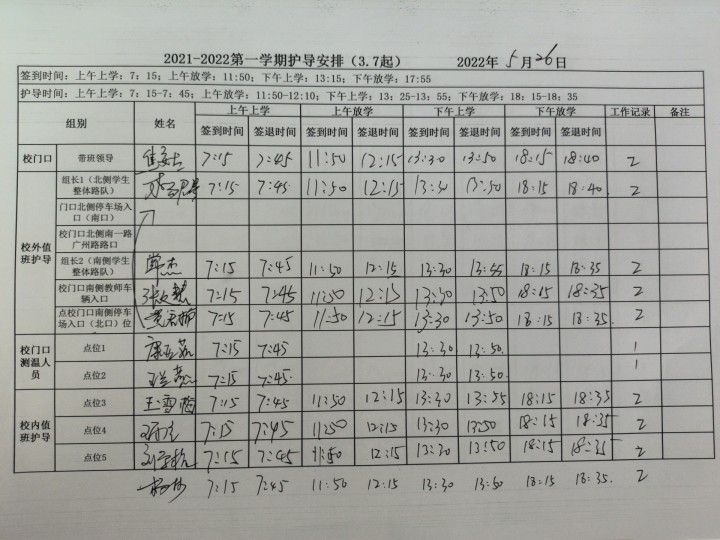 2021-2022第一学期护导安排（3.7起） 2022年 5 月 26 日
签到时间：上午上学：7：15；上午放学：11:50；下午上学：13:15；下午放学：17:55
护导时间：上午上学：7：15-7：45；上午放学：11:50-12:10；下午上学：13：25-13：55；下午放学：18：15-18：35
组别 姓名 上午上学 上午放学 下午上学 下午放学 工作记录 备注
签到时间 签退时间 签到时间 签退时间 签到时间 签退时间 签到时间 签退时间
校门口 带班领导 7:15 7:45 11:50 12:15 13:30 13:50 18:15 18:40 2
校外值班护导
组长1（北侧学生整体路队） 7:15 7:45 11:50 12:15 13:30 13:50 18:15 18:40 2
门口北侧停车场入口（南口）
校门口北侧南一路广州路路口
组长2（南侧学生整体路队） 7:15 7:45 11:50 12:15 13:30 13:55 18:15 18:35 2
校门口南侧教师车辆入口 7:15 7:45 11:50 12:15 13:30 13:50 18:15 18:35 2
点校门口南侧停车场入口（北口）位 7:15 7:45 11:50 12:15 13:30 13:50 18:15 18:35 2
校门口测温人员
点位1 7:15 7:45 13:30 13:50 1
点位2 7:15 7:45 13:30 13:50 1
校内值班护导
点位3 王雪梅 7:15 7:45 11:50 12:15 13:30 13:55 18:15 18:35 2
点位4 7:15 7:45 11:50 12:15 13:30 13:50 18:15 18:35 2
点位5 7:15 7:45 11:50 12:15 13:30 13:50 18:15 18:35 2
7:15 7:45 11:50 12:15 13:30 13:50 18:15 18:35 2